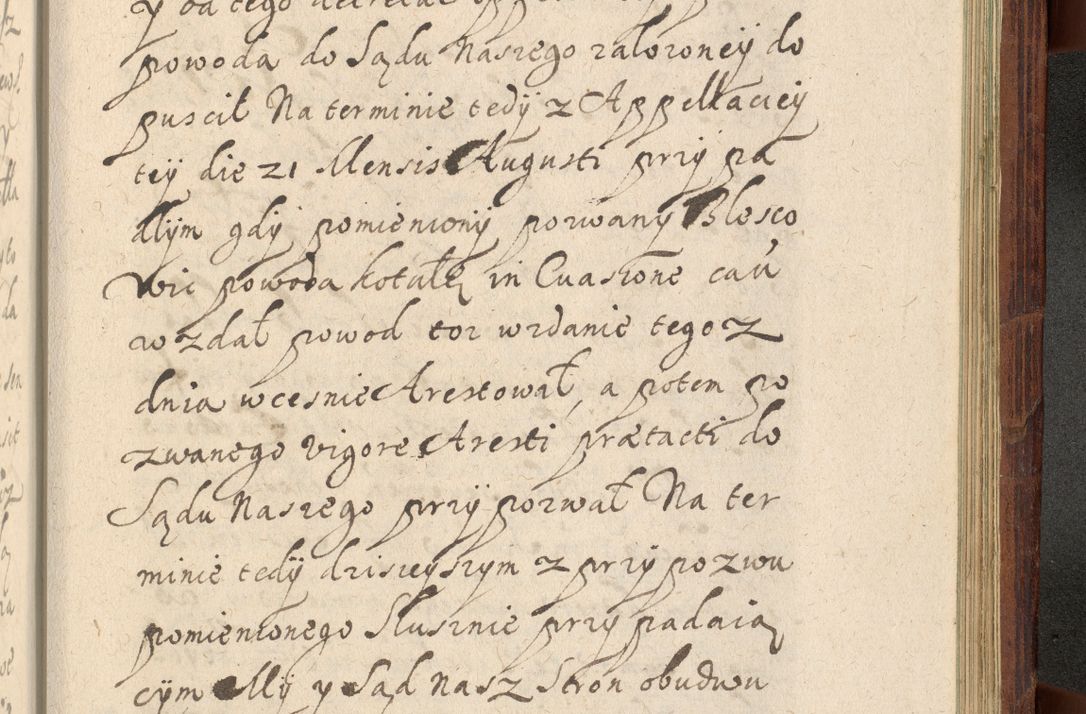 y od tego
powoda do Sądu Naszego założoneÿ do
puscił Na terminie tedÿ z Appellaciey
teÿ die 21 Mensis Augusti przÿ pa
dłÿm gdÿ pomienionÿ pozwanÿ Blesco
wic powoda Kotułę in Euasione cau
w zdał powod toż wzdanie tego z
dnia wcesnie Arestował, a potem po
zwanego vigore Aresti prætacti do
Sądu Naszego przÿ pozwał Na ter
minie tedÿ dzisieÿszym z przÿ pozwu
pomienionego Słusznie przÿ padaią
cÿm Mÿ y Sąd Nasz Stron obudwu